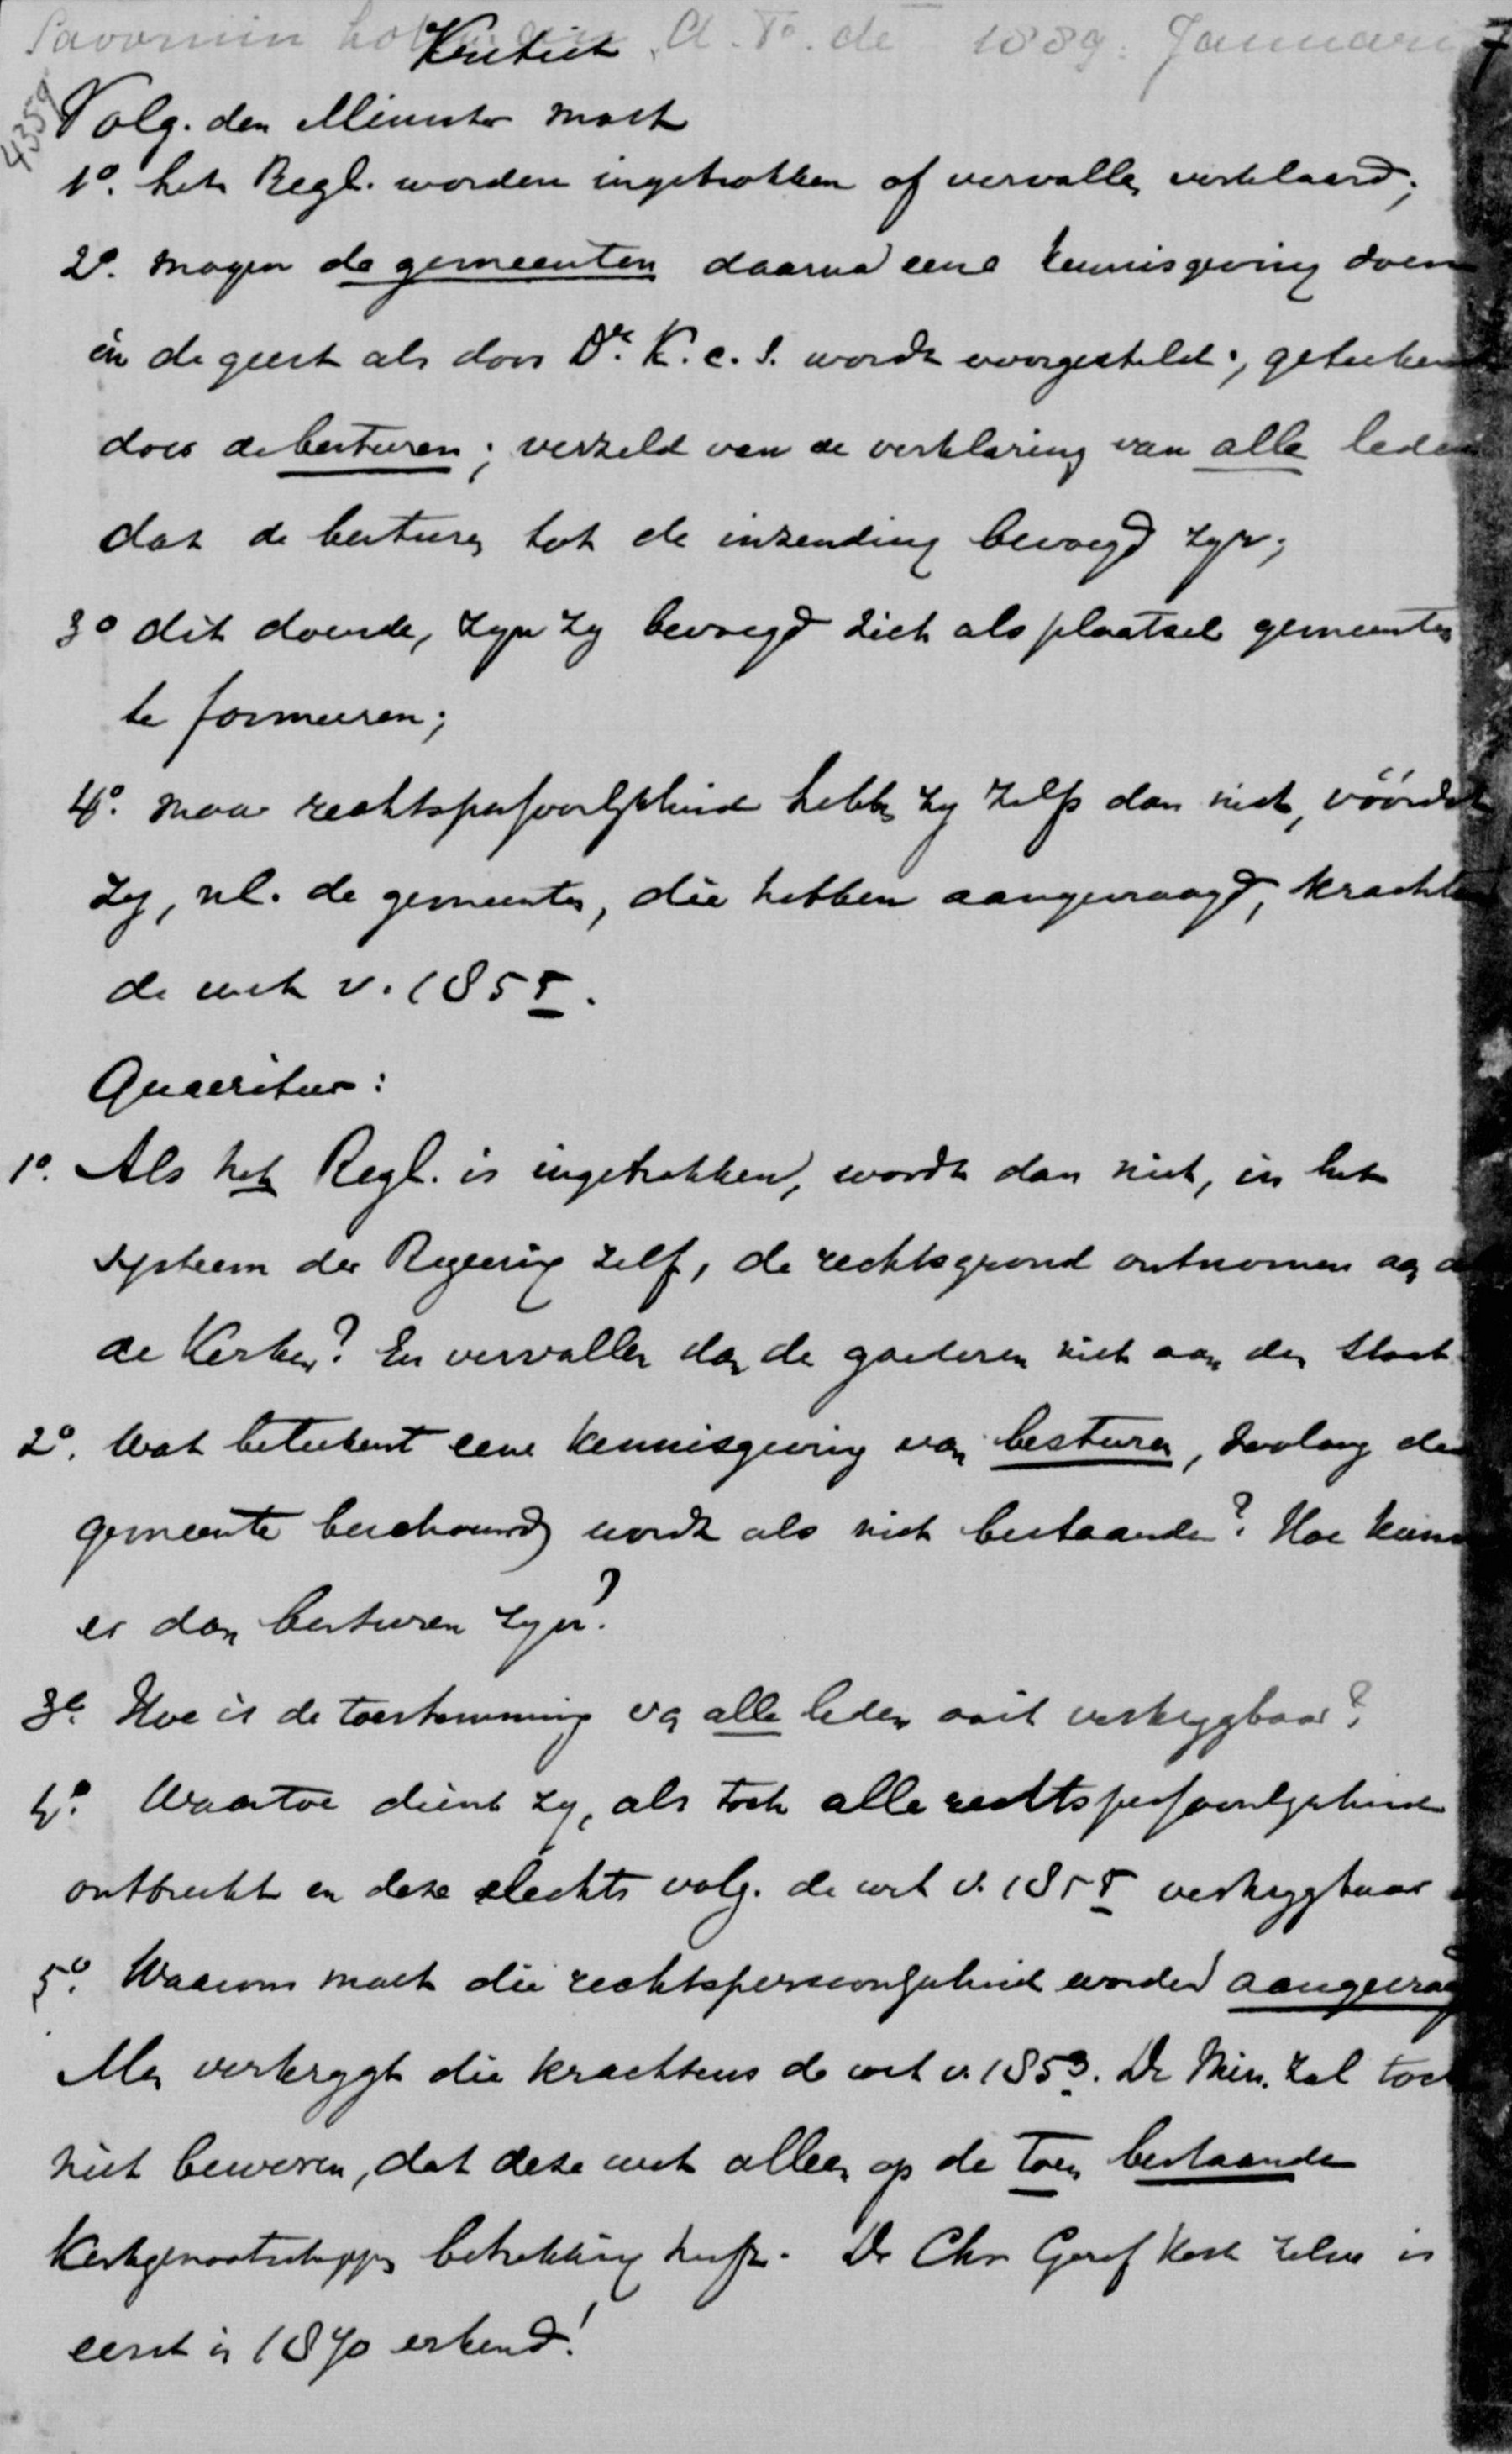 Savornin Lohman, A. F. de 1889. Januari
Kritiek
4359
Volg. den Minister moet
1o. het Regl. worden ingetrokken of vervallen verklaard;
2o. mogen de gemeenten daarna eene kennisgeving doen
in de geest als door Dr. K. c. s. wordt voorgesteld; geteeken
door de besturen; verzeld van de verklaring van alle leden
dat de besturen tot de inzending bevoegd zyn;
3o dit doende, zyn zy bevoegd zich als plaatsel gemeenten
te formeeren;
4o. maar rechtspersoonlykheid hebben zy zelfs dan niet, vóórdat
zy, nl. de gemeenten, die hebben aangevraagd, krachtens
de wet v. 1855.
Quaeritur:
1o. Als het Regl. is ingetrokken, wordt dan niet, in het
systeem der Regeering zelf, de rechtsgrond ontnomen aan
de Kerken? En vervallen dan de goederen niet aan den Staat
2o. Wat beteekent eene kennisgeving van besturen, zoolang de
gemeente beschouwd wordt als niet bestaande? Hoe kunn
er dan besturen zyn?
3o. Hoe is de toestemming van alle leden ooit verkrygbaar?
4o. Waartoe dient zy, als toch alle rechtspersoonlykheid
ontbreekt en deze slechts volg. de wet v. 1855 verkrygbaar
5o. Waarom moet die rechtspersoonlykheid worden aangevraag
Men verkrygt die krachtens de wet v. 1853. De Min. zal toch
niet beweren, dat deze wet alleen op de toen bestaande
Kerkgenootschappen betrekking heeft. De Chr Geref Kerk zelve is
eerst in 1870 erkend!